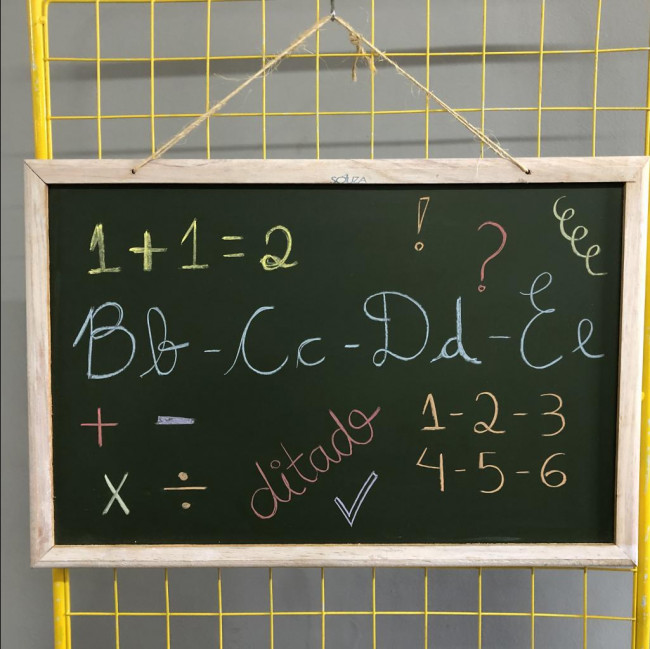 SOUZA
1+1=2 ! ?
Bb-Cc-Dd-Ee
+ -
1-2-3
x ÷
ditado
4-5-6
✓